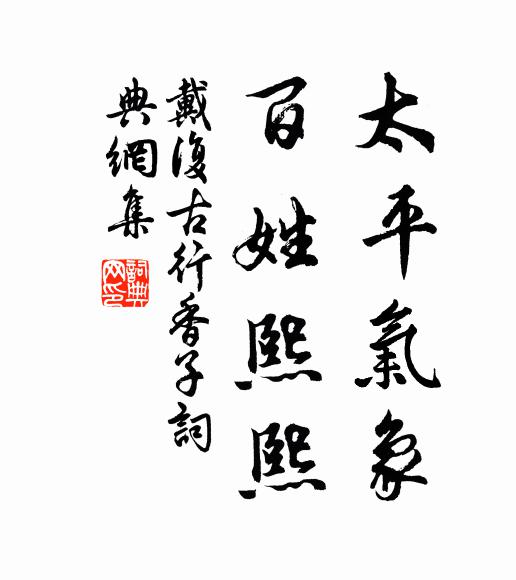 太平氣象
百姓熙熙
戴復古行香子詞
典網集
詞典网印